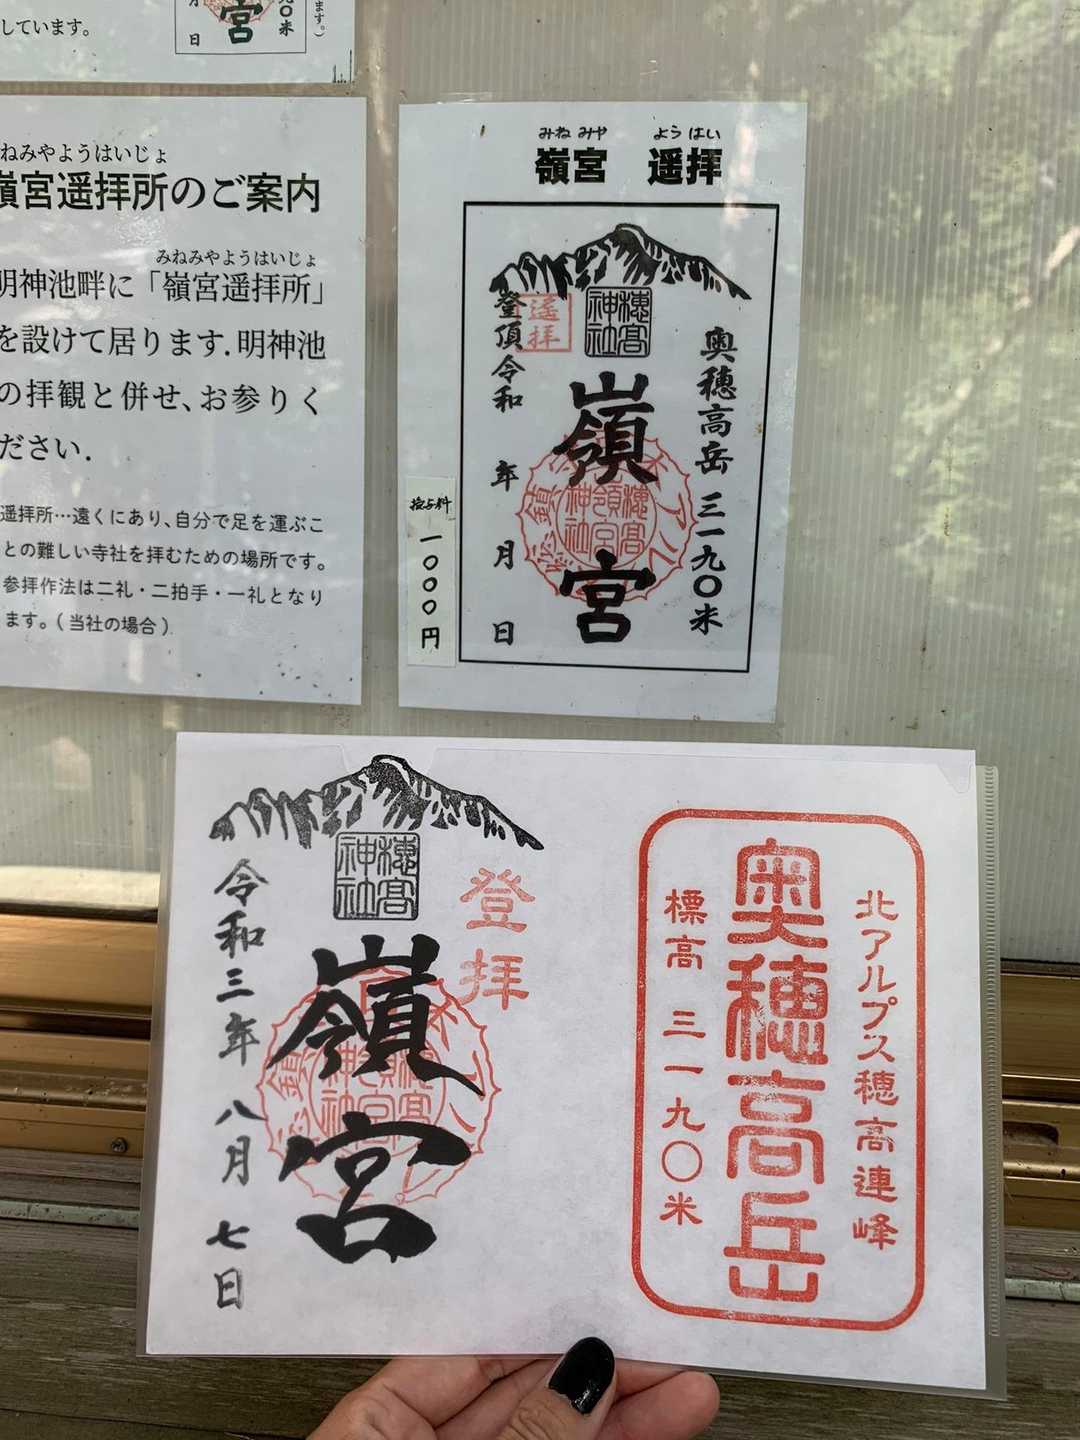 しています。
ます。）
月
日
宮
九〇米
ねみやようはいじょ
嶺宮遥拝所のご案内
みねみやようはいじょ
明神池畔に「嶺宮遥拝所」
を設けて居ります.明神池
の拝観と併せ、お参りく
ださい.
遥拝所…遠くにあり、自分で足を運ぶこ
との難しい寺社を拝むための場所です。
参拝作法は二礼・二拍手・一礼となり
ます。(当社の場合)
みねみや ようはい
嶺宮 遥拝
奥穂高岳 三一九〇米
穂高神社
嶺宮
穂高嶺宮神社
遥拝
登頂令和 年 月 日
授与料
一〇〇〇円
北アルプス穂高連峰
奥穂高岳
標高 三一九〇米
登拝
穂高神社
嶺宮
穂高嶺宮神社
令和三年八月七日